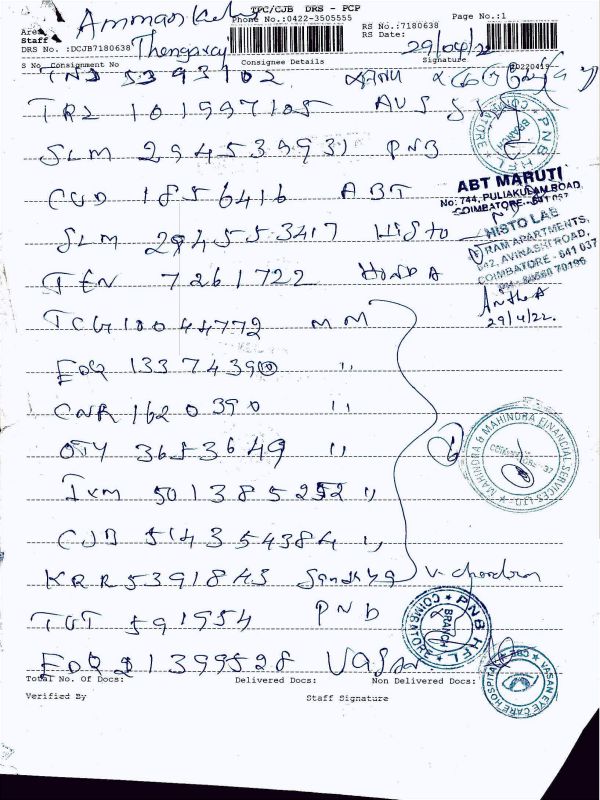 Ammankul
TPC/CJB DRS - PCP
Phone No.:0422-3505555
RS No.:7180638
Page No.:1
Area
Staff
RS Date:
29/04/22
DRS No. :DCJB7180638
S No Consignment No
Consignee Details
Signature
20220419
TNJ 5393902
TRZ 101997105 AVS
SLM 294539931 PNB
CUD 1856416 ABT
SLM 294553417 Histo
TEN 7261722 HONDA
TCG 10044772 MM
EDQ 13374390 ,,
CNR 1620390 ,,
OTY 3653649 ,,
TVM 501385252 ,,
CJB 514354384 ,,
KRR 5391843
TUT 591954 PNB
EDQ 21399528 Vasan
PNB HFL
COIMBATORE
BRANCH
ABT MARUTI
No: 744, PULIAKULAM ROAD,
COIMBATORE - 641 037
HISTO LAB
RAM APARTMENTS,
AVINASHI ROAD,
COIMBATORE - 641 037
29/4/22.
MAHINDRA & MAHINDRA FINANCIAL SERVICES LTD
PNB HFL
COIMBATORE
BRANCH
VASAN EYE CARE HOSPITAL
CBE
Total No. Of Docs:
Delivered Docs:
Non Delivered Docs:
Verified By
Staff Signature